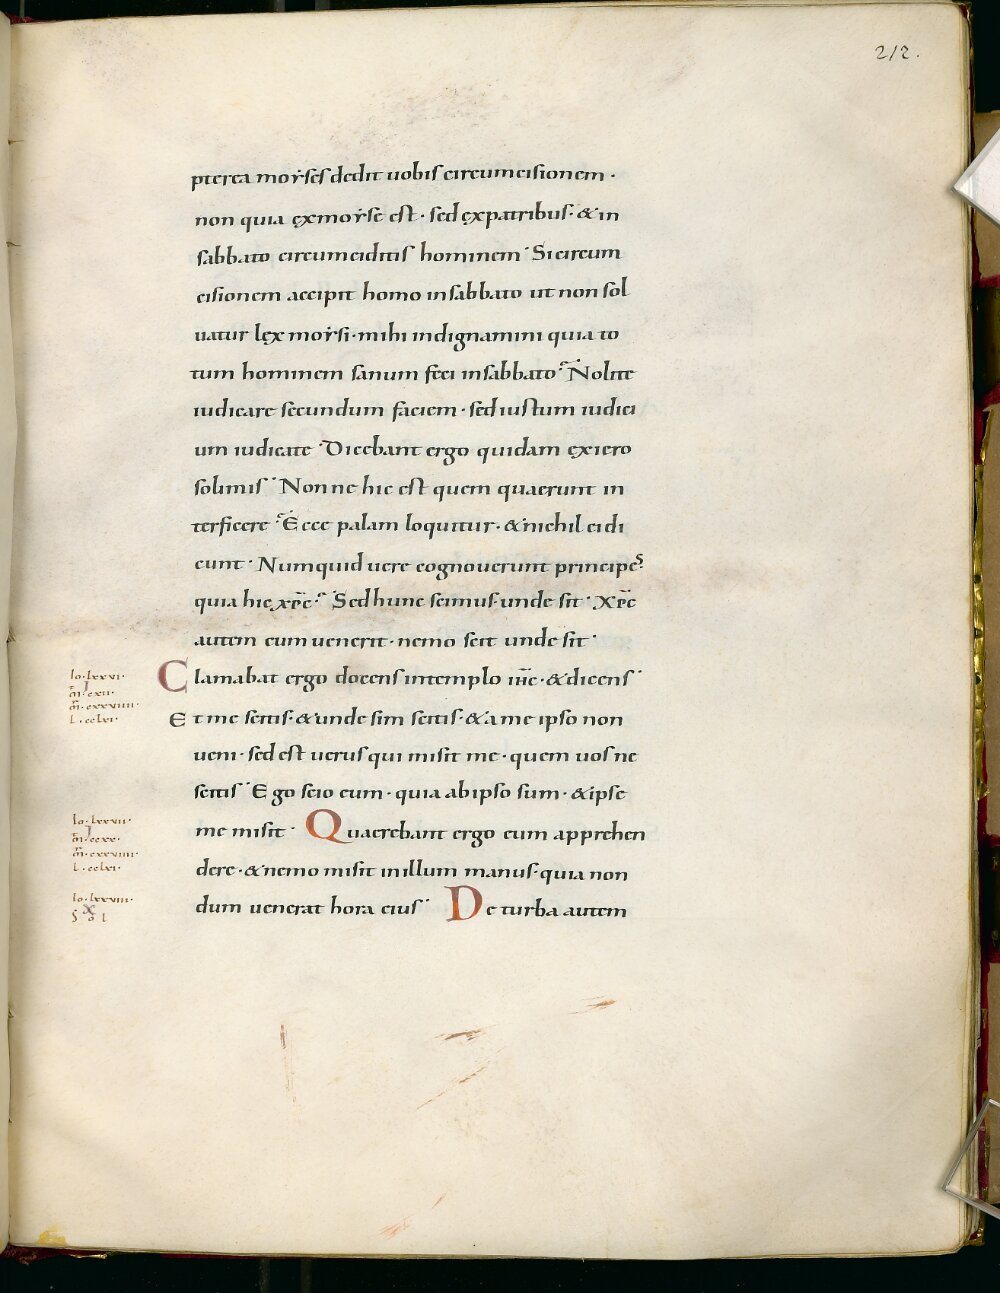 212.
pterea moẏses dedit uobis circumcisionem ·
non quia ęxmoẏse est · sed ęxpatribus · & in
sabbato circumciditis hominem · Si circum
cisionem accipit homo insabbato ut non sol
uatur lęx moẏsi · mihi indignamini quia to
tum hominem sanum feci insabbato · Nolite
iudicare secundum faciem · sed iustum iudici
um iudicate · Dicebant ergo quidam ęxiero
solimis · Non ne hic est quem quaerunt in
terficere · Ecce palam loquitur · & nichil ei di
cunt · Numquid uere cognouerunt principes
quia hic xp̄c · Sed hunc scimus unde sit · Xp̄c
autem cum uenerit · nemo scit unde sit ·
Clamabat ergo docens intemplo ih̄c · & dicens ·
Io · lxxvi ·
I
m̄ · cxii ·
m̄ · cxxviiii ·
L · cclxi ·
Et me scitis · & unde sim scitis · & a me ipso non
ueni · sed est uerus qui misit me · quem uos ne
scitis · Ego scio eum · quia abipso sum · & ipse
me misit · Quaerebant ergo eum apprehen
Io · lxxvii ·
I
m̄ · ccxx ·
m̄ · cxxviiii ·
L · cclxi ·
dere · & nemo misit inillum manus · quia non
dum uenerat hora eius · De turba autem
Io · lxxviii ·
X
Sol